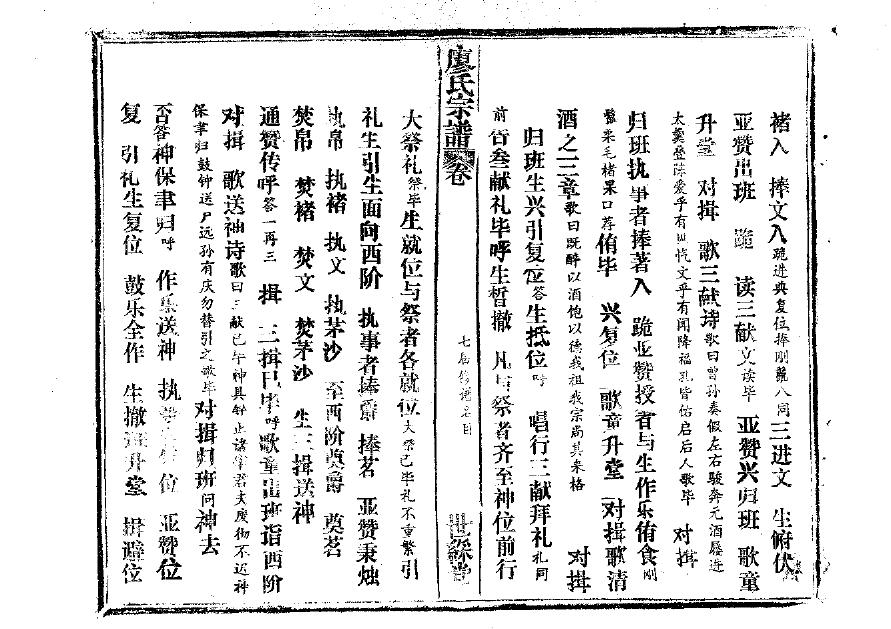 褚入 捧文入 疏进典复位捧刚鬣入同 三进文 生俯伏
亚赞出班 跪 读三献文 读毕 亚赞兴归班 歌童
升堂 对揖 歌三献诗 歌曰曾孙奏假左右骏奔元酒屡进
太羹叠陈爱乎有 忾文乎有闻降福孔皆佑启后人歌毕 对揖
归班执事者捧著入 跪亚赞授著与生作乐侑食 刚
鬣柔毛楮果口荐 侑毕 兴复位 歌童升堂 对揖歌清
酒之三章 歌曰既醉以酒饱以德我祖我宗尚其来格 对揖
归班生兴引复位 答 生抵位 呼 唱行三献拜礼 礼同
前 叁献礼毕呼生暂撤 凡与祭者齐至神位前行
廖氏宗谱 卷
七届 谱名目
世䌽堂
大祭礼 祭毕 生就位与祭者各就位 大祭已毕礼不重繁 引
礼生引生面向西阶 执事者捧爵 捧茗 亚赞秉烛
执帛 执褚 执文 执茅沙 至西阶奠爵 奠茗
焚帛 焚褚 焚文 焚茅沙 生三揖送神
通赞传呼 答一再三 揖 三揖已毕 呼 歌童出班诣西阶
对揖 歌送神诗 歌曰三献已午神具 止诸宰君夫废彻不迟神
保聿归鼓钟送尸远孙有庆勿替引之歌毕 对揖归班 问 神去
否 答 神保聿归 呼 作乐送神 执 位 亚赞位
复 引礼生复位 鼓乐全作 生撤 升堂 揖 位